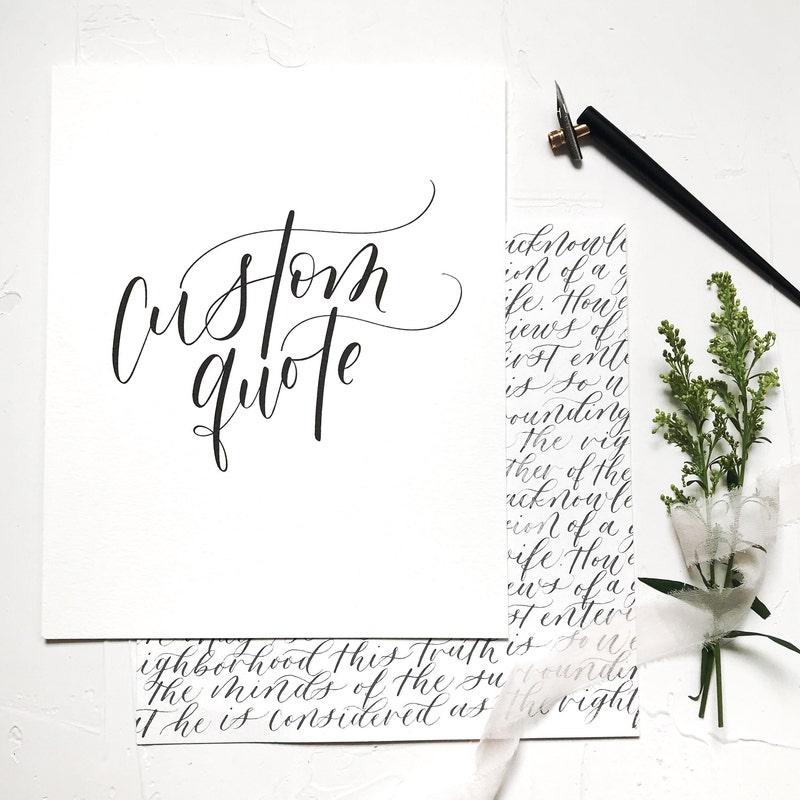 custom
quote
acknowle
ion of a g
ife. Howe
iews of
irst ente
is so w
ounding
the rig
ther of the
acknowle
sion of a g
ife. Howe
ews of a g
st enteri
ighborhood this truth is so we
the minds of the surroundin
at he is considered as the rightf